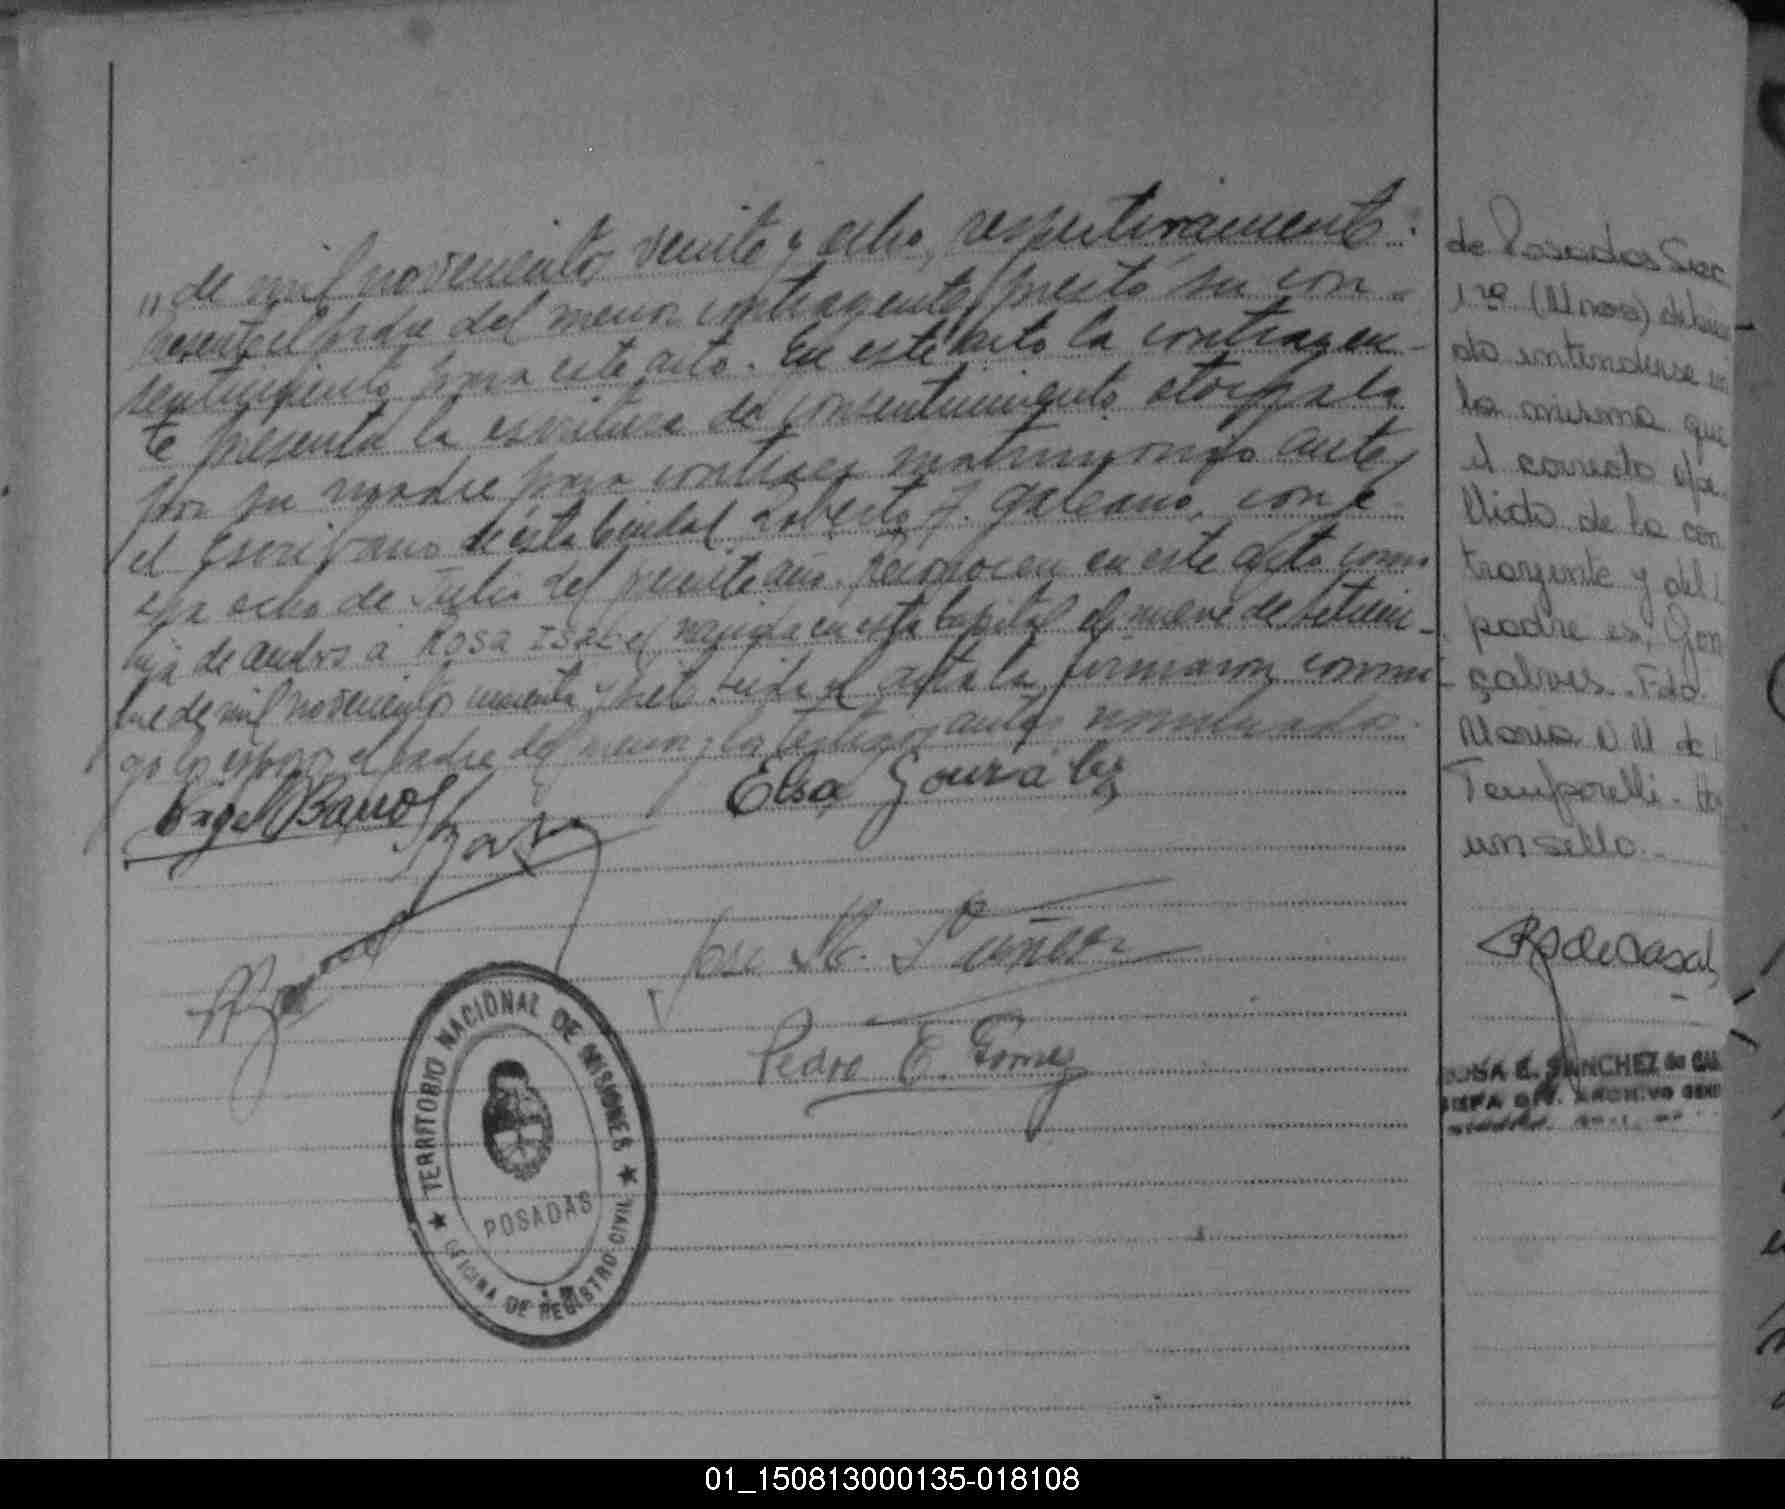 „ de mil novecientos veinte y ocho, respectivamente:
Presente el padre del menor contrayente, prestó su con-
sentimiento para este acto. En este acto la contrayen-
te presenta la escritura de consentimiento otorgada
por su madre para contraer matrimonio ante
el Escribano de esta Capital Roberto J. Galeano, con fe-
cha ocho de Julio del presente año. Reconocen en este acto como
hija de ambos a Rosa Isabel nacida en esta Capital el nueve de setiem-
bre de mil novecientos cuarenta y siete. Leida el acta la firmaron conmi-
go los esposos, el padre del menor y los testigos antes nombrados.
Elsa Gonzalez
Jose M.
Pedro E. Gomez
TERRITORIO NACIONAL DE MISIONES
POSADAS
OFICINA DE REGISTRO CIVIL
de Posadas Secc
1ra (Mnes) debien
do entenderse en
la misma que
el correcto ape
llido de la con
trayente y del
padre es, Gon
çalves. Fdo.
Maria N M de
Temporelli. Ha
un sello.
ROSA E. SANCHEZ de
JEFA DIV. ARCHIVO GENE
01_150813000135-018108